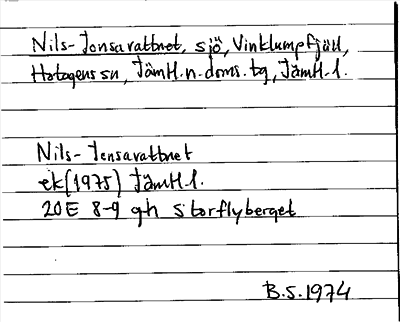 Nils-Jonsavattnet, sjö, Vinklumpfjäll,
Hotagens sn, Jämtl.n.doms.tg, Jämtl.l.
Nils-Jensavattnet
ek(1975) Jämtl.l.
20E 8-9 gh Storflyberget
B.S.1974